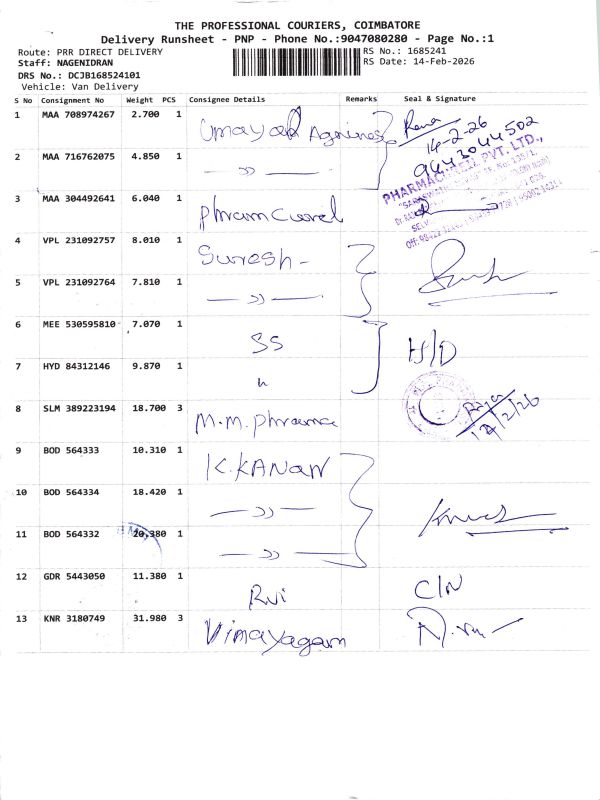 THE PROFESSIONAL COURIERS, COIMBATORE
Delivery Runsheet - PNP - Phone No.:9047080280 - Page No.:1
Route: PRR DIRECT DELIVERY
RS No.: 1685241
Staff: NAGENIDRAN
RS Date: 14-Feb-2026
DRS No.: DCJB168524101
Vehicle: Van Delivery
S No Consignment No Weight PCS Consignee Details Remarks Seal & Signature
1 MAA 708974267 2.700 1
14-2-26
9443044502
2 MAA 716762075 4.850 1 — ,, —
PVT. LTD.,
3 MAA 304492641 6.040 1
4 VPL 231092757 8.010 1 Suresh -
5 VPL 231092764 7.810 1 — ,, —
6 MEE 530595810 7.070 1 SS
H/D
7 HYD 84312146 9.870 1 "
8 SLM 389223194 18.700 3 M.M. Phrama
9 BOD 564333 10.310 1 K.KANAN
10 BOD 564334 18.420 1 — ,, —
11 BOD 564332 20.380 1 — ,, —
12 GDR 5443050 11.380 1 C/N
13 KNR 3180749 31.980 3 Vimayagam